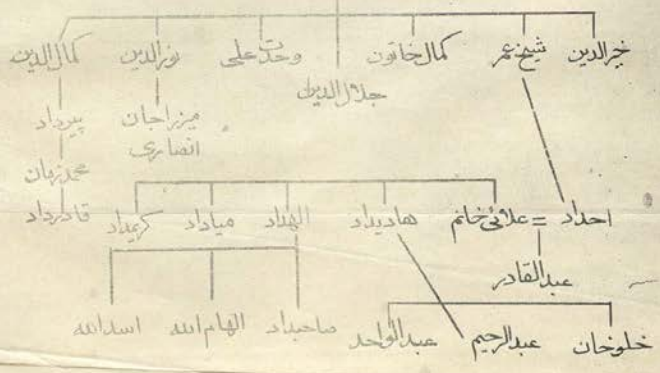 خیرالدین شیخ عمر کمال خاتون جلال الدین وحدت علی نورالدین کمال الدین
میرزاجان پیرداد
انصاری
محمد زمان
احداد = علائی خانم هادیداد الهداد میاداد کریمداد قادرداد
عبدالقادر
خلوخان عبدالرحیم عبدالواحد صاحبداد الهام الله اسدالله